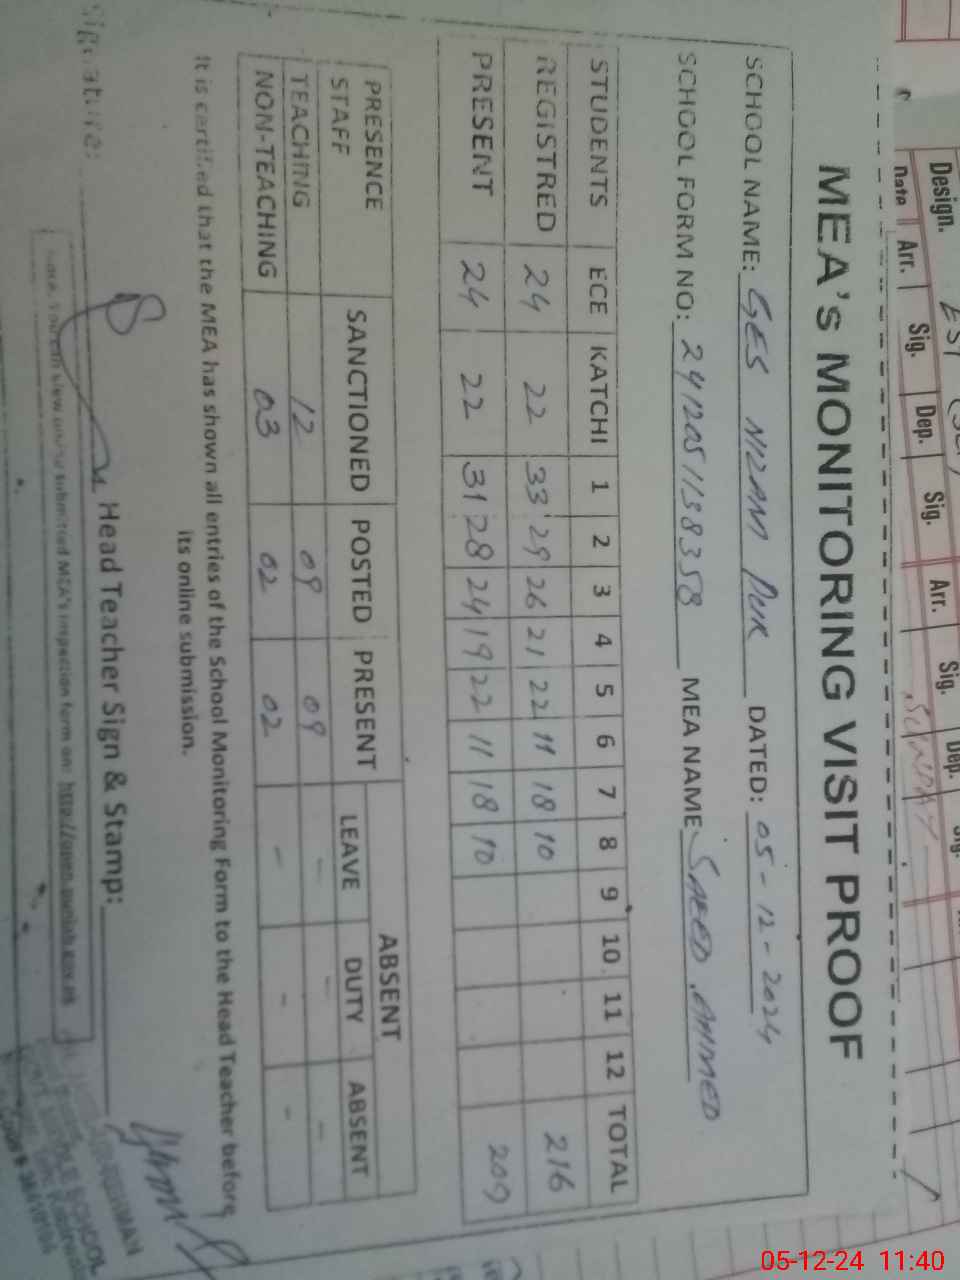 Design.
Date Arr. Sig. Dep. Sig. Arr. Sig. Dep. Sig.
SUNDAY
MEA's MONITORING VISIT PROOF
SCHOOL NAME: GES NIZAM PUR DATED: 05-12-2024
SCHOOL FORM NO: MEA NAME SAEED AHMED
STUDENTS ECE KATCHI 1 2 3 4 5 6 7 8 9 10 11 12 TOTAL
REGISTRED 24 22 33 29 26 21 22 11 18 10 216
PRESENT 24 22 31 28 24 19 22 11 18 10 209
PRESENCE STAFF SANCTIONED POSTED PRESENT ABSENT
LEAVE DUTY ABSENT
TEACHING 12 09 09 - - -
NON-TEACHING 03 02 02 - - -
It is certified that the MEA has shown all entries of the School Monitoring Form to the Head Teacher before
its online submission.
Signature: Head Teacher Sign & Stamp:
Note: You can view online submitted MEA's inspection form on: http://open.punjab.gov.pk
SCHOOL
05-12-24 11:40